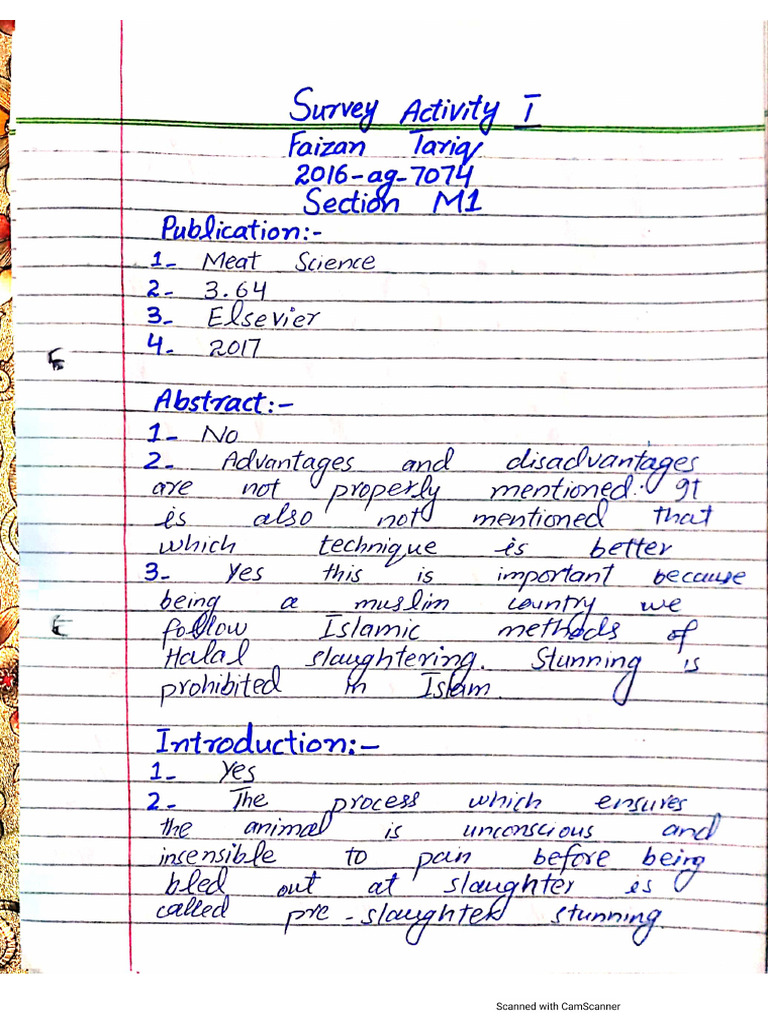 Survey Activity I
Faizan Tariq
2016-ag-7074
Section M1
Publication:-
1- Meat Science
2- 3.64
3- Elsevier
4- 2017
Abstract:-
1- No
2- Advantages and disadvantages
are not properly mentioned. It
is also not mentioned that
which technique is better
3- Yes this is important because
being a muslim country we
follow Islamic methods of
Halal slaughtering. Stunning is
prohibited in Islam.
Introduction:-
1- Yes
2- The process which ensures
the animal is unconscious and
insensible to pain before being
bled out at slaughter is
called pre-slaughter stunning.
Scanned with CamScanner